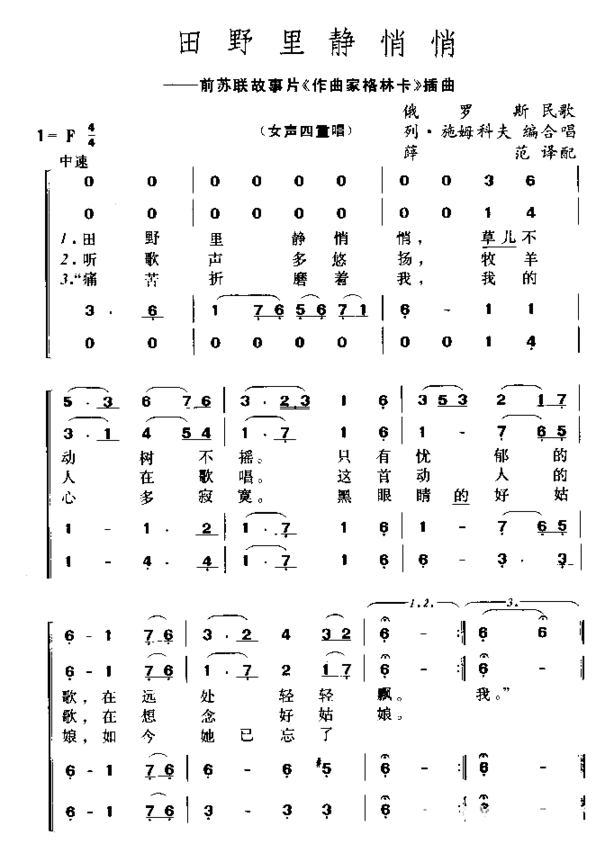 田野里静悄悄
——前苏联故事片《作曲家格林卡》插曲
俄罗斯民歌
1=F 4/4 (女声四重唱) 列·施姆科夫 编合唱
中速 薛范 译配
0 0 0 0 0 0 0 0 3 6
0 0 0 0 0 0 0 0 1 4
1.田野里静悄悄，草儿不
2.听歌声多悠扬，牧羊
3.“痛苦折磨着我，我的
3 · 6 1 7 6 5 6 7 1 6 - 1 1
0 0 0 0 0 0 0 0 1 4
5 · 3 6 7 6 3 · 2 3 1 6 3 5 3 2 1 7
3 · 1 4 5 4 1 · 7 1 6 1 - 7 6 5
动树不摇。只有忧郁的
人在歌唱。这首动人的
心多寂寞。黑眼睛的好姑
1 - 1 · 2 1 · 7 1 6 1 - 7 6 5
1 - 4 · 4 1 · 7 1 6 6 - 3 · 3
1.2. 3.
6 - 1 7 6 3 · 2 4 3 2 6 - :‖ 6 6 ‖
6 - 1 7 6 1 · 7 2 1 7 6 - :‖ 6 - ‖
歌，在远处轻轻飘。我。”
歌，在想念好姑娘。
娘，如今她已忘了
6 - 1 7 6 6 - 6 #5 6 - :‖ 6 - ‖
6 - 1 7 6 3 - 3 3 6 - :‖ 6 - ‖